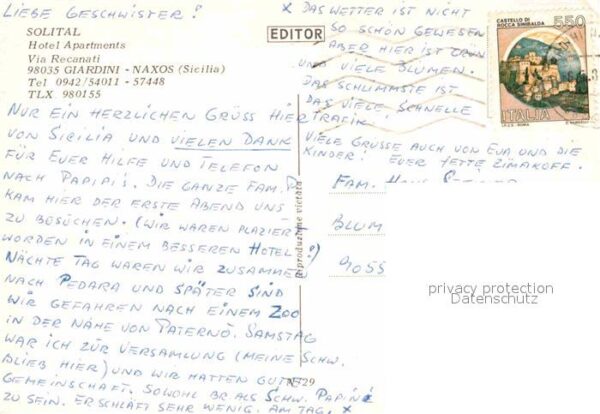 LIEBE GESCHWISTER!
SOLITAL
Hotel Apartments
Via Recanati
98035 GIARDINI - NAXOS (Sicilia)
Tel 0942/54011 - 57448
TLX 980155
NUR EIN HERZLICHEN GRÜSS HIER
VON SICILIA UND VIELEN DANK
FÜR EUER HILFE UND TELEFON
NACH PAPIPI'S. DIE GANZE FAM. P
KAM HIER DER ERSTE ABEND UNS
ZU BESUCHEN. (WIR WAREN PLAZIER-
WORDEN IN EINEM BESSEREN HOTEL!)
NÄCHTE TAG WAREN WIR ZUSAMMEN
NACH PEDARA UND SPÄTER SIND
WIR GEFAHREN NACH EINEM ZOO
IN DER NÄHE VON PATERNÒ. SAMSTAG
WAR ICH ZÜR VERSAMLUNG (MEINE SCHW.
BLIEB HIER) UND WIR HATTEN GUTE
GEMEINSCHAFT. SOWOHL BR ALS SCHW. PAPINI
ZU SEIN. ER SCHLÄFT SEHR WENIG. AM TAG. X
X DAS WETTER IST NICHT
SO SCHÖN GEWESEN
ABER HIER IST GRÜN
UND VIELE BLUMEN.
DAS SCHLIMMSTE IST
DAS VIELE, SCHNELLE
TRAFIK.
VIELE GRÜSSE AUCH VON EVA UND DIE
KINDER! EUER JETTE RIMAKOFF.
EDITOR
CASTELLO DI
ROCCA SINIBALDA
550
ITALIA
I.P.Z.S. - ROMA
FAM.
BLUM
9055
Riproduzione vietata
N-29
privacy protection
Datenschutz